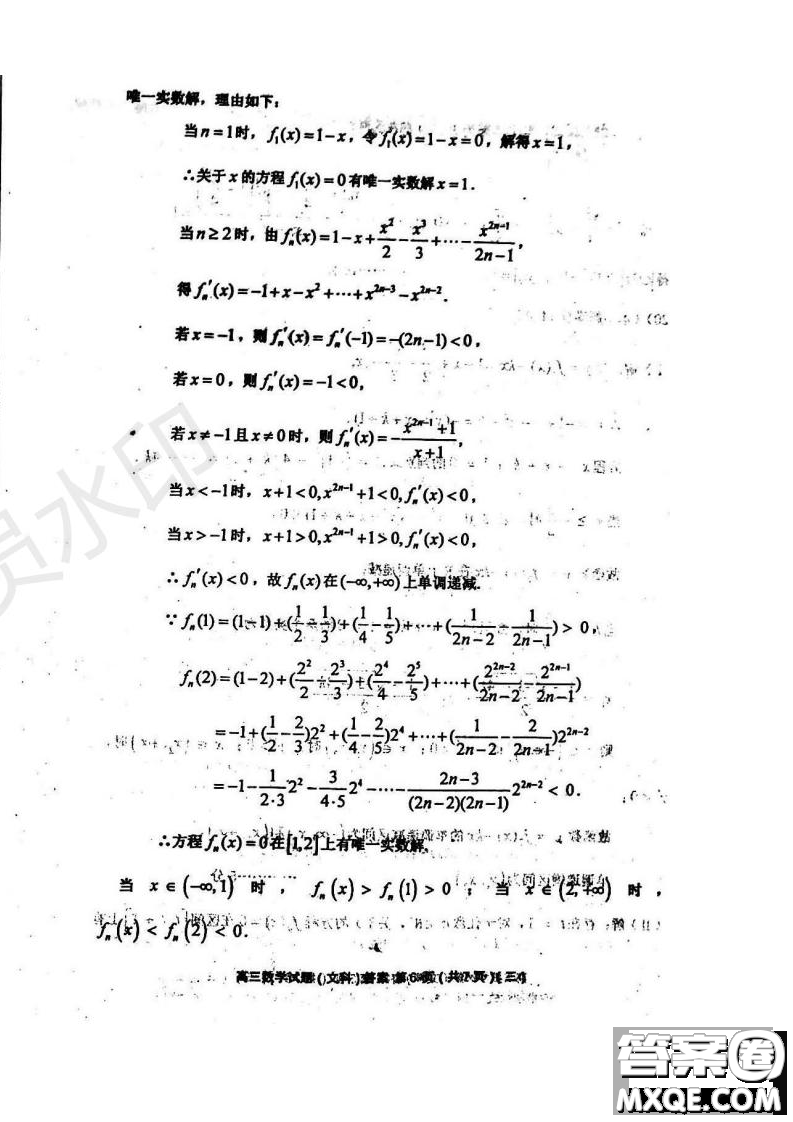 唯一实数解，理由如下：
当n=1时，f₁(x)=1-x，令f₁(x)=1-x=0，解得x=1，
∴关于x的方程f₁(x)=0有唯一实数解x=1．
当n≥2时，由fₙ(x)=1-x+x²/2-x³/3+⋯-x²ⁿ⁻¹/(2n-1)，
得fₙ′(x)=-1+x-x²+⋯+x²ⁿ⁻³-x²ⁿ⁻²．
若x=-1，则fₙ′(x)=fₙ′(-1)=-(2n-1)<0，
若x=0，则fₙ′(x)=-1<0，
若x≠-1且x≠0时，则fₙ′(x)=-(x²ⁿ⁻¹+1)/(x+1)，
当x<-1时，x+1<0,x²ⁿ⁻¹+1<0,fₙ′(x)<0，
当x>-1时，x+1>0,x²ⁿ⁻¹+1>0,fₙ′(x)<0，
∴fₙ′(x)<0，故fₙ(x)在(-∞,+∞)上单调递减．
∵fₙ(1)=(1-1)+(1/2-1/3)+(1/4-1/5)+⋯+(1/(2n-2)-1/(2n-1))>0，
fₙ(2)=(1-2)+(2²/2-2³/3)+(2⁴/4-2⁵/5)+⋯+(2²ⁿ⁻²/(2n-2)-2²ⁿ⁻¹/(2n-1))
=-1+(1/2-2/3)2²+(1/4-2/5)2⁴+⋯+(1/(2n-2)-2/(2n-1))2²ⁿ⁻²
=-1-1/(2·3)2²-3/(4·5)2⁴-⋯-(2n-3)/((2n-2)(2n-1))2²ⁿ⁻²<0．
∴方程fₙ(x)=0在[1,2]上有唯一实数解．
当x∈(-∞,1)时，fₙ(x)>fₙ(1)>0；当x∈(2,+∞)时，
fₙ(x)<fₙ(2)<0．
高三数学试题(文科)答案 第6页(共7页)
水印
答案圈
MXQE.COM